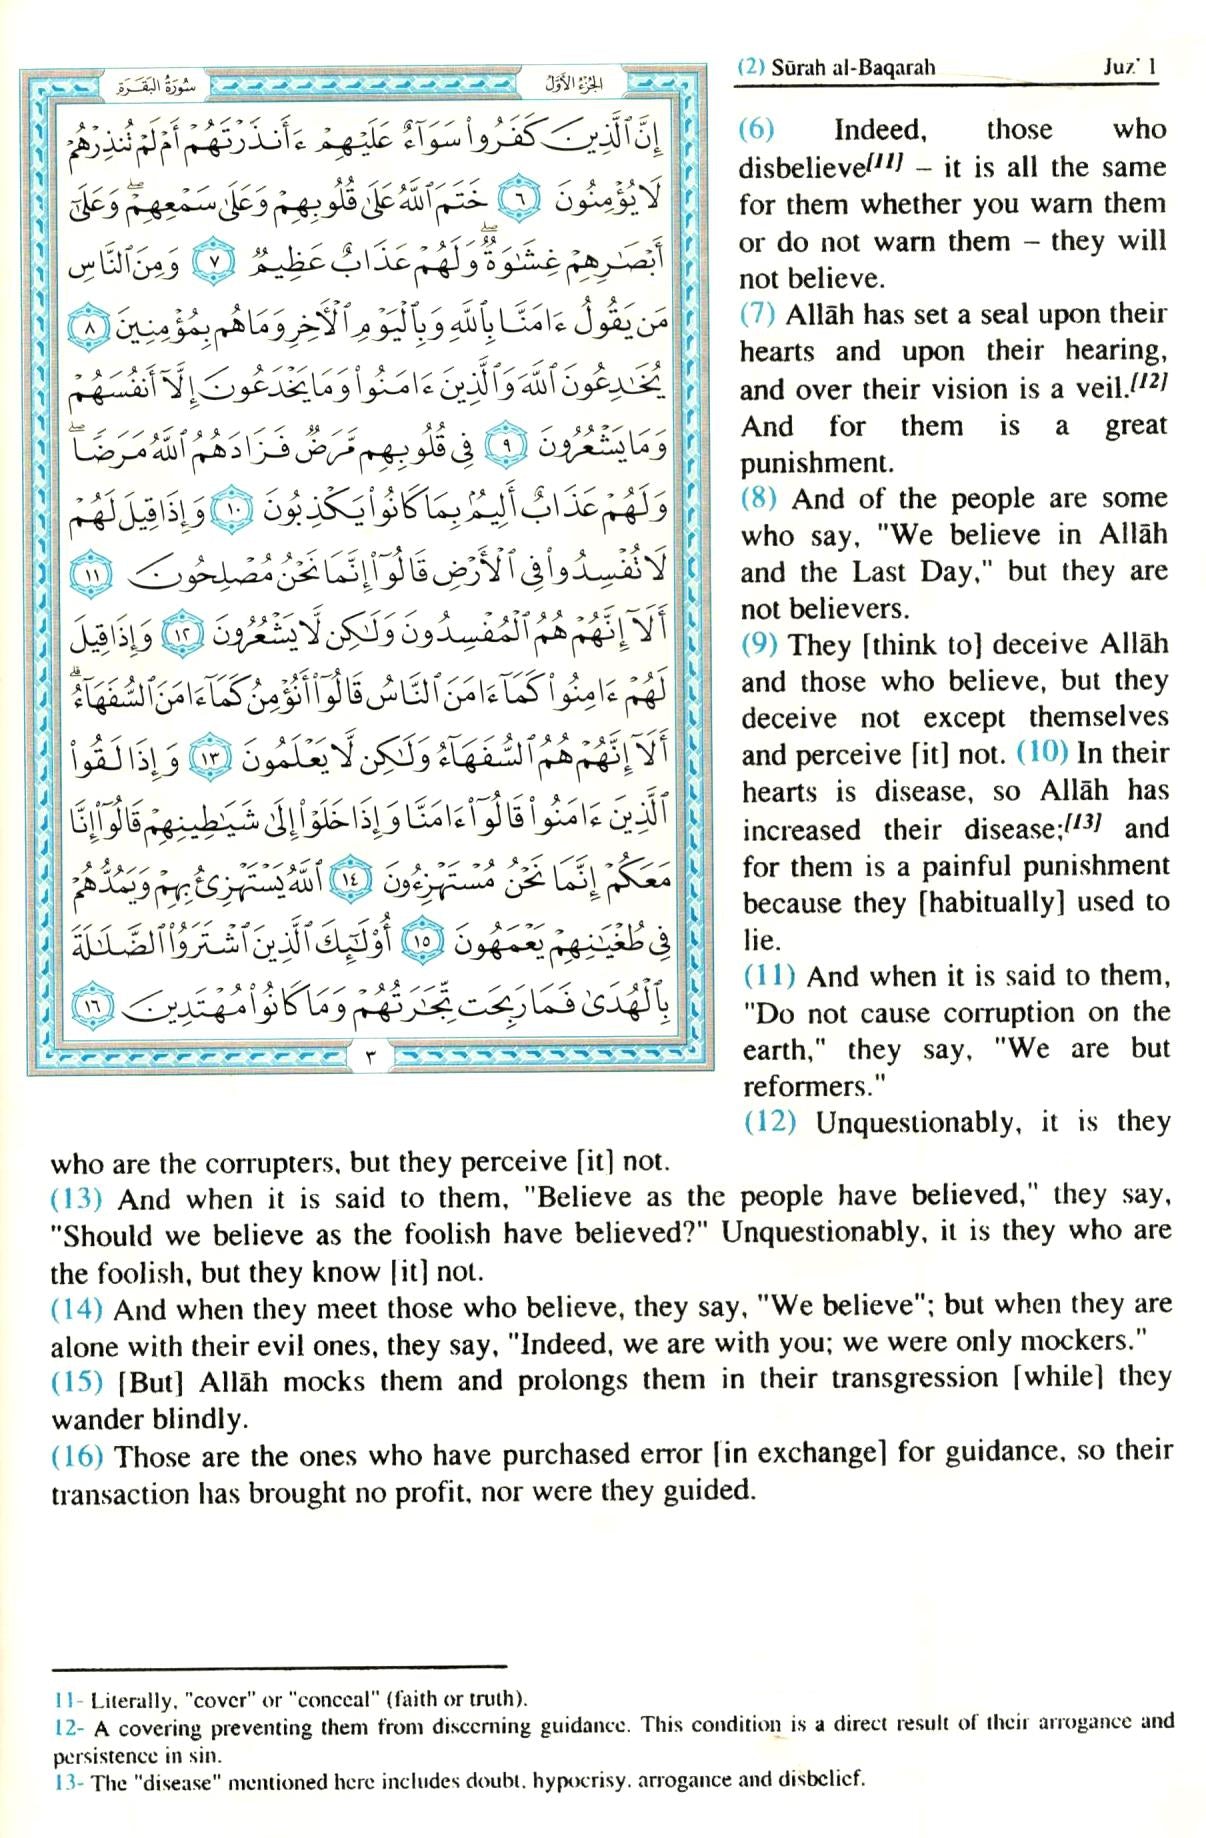 سُورَةُ البَقَرَةِ
الجُزْءُ الأَوَّلُ
إِنَّ ٱلَّذِينَ كَفَرُوا۟ سَوَآءٌ عَلَيْهِمْ ءَأَنذَرْتَهُمْ أَمْ لَمْ تُنذِرْهُمْ
لَا يُؤْمِنُونَ ٦ خَتَمَ ٱللَّهُ عَلَىٰ قُلُوبِهِمْ وَعَلَىٰ سَمْعِهِمْ ۖ وَعَلَىٰٓ
أَبْصَـٰرِهِمْ غِشَـٰوَةٌ ۖ وَلَهُمْ عَذَابٌ عَظِيمٌ ٧ وَمِنَ ٱلنَّاسِ
مَن يَقُولُ ءَامَنَّا بِٱللَّهِ وَبِٱلْيَوْمِ ٱلْـَٔاخِرِ وَمَا هُم بِمُؤْمِنِينَ ٨
يُخَـٰدِعُونَ ٱللَّهَ وَٱلَّذِينَ ءَامَنُوا۟ وَمَا يَخْدَعُونَ إِلَّآ أَنفُسَهُمْ
وَمَا يَشْعُرُونَ ٩ فِى قُلُوبِهِم مَّرَضٌ فَزَادَهُمُ ٱللَّهُ مَرَضًا ۖ
وَلَهُمْ عَذَابٌ أَلِيمٌۢ بِمَا كَانُوا۟ يَكْذِبُونَ ١٠ وَإِذَا قِيلَ لَهُمْ
لَا تُفْسِدُوا۟ فِى ٱلْأَرْضِ قَالُوٓا۟ إِنَّمَا نَحْنُ مُصْلِحُونَ ١١
أَلَآ إِنَّهُمْ هُمُ ٱلْمُفْسِدُونَ وَلَـٰكِن لَّا يَشْعُرُونَ ١٢ وَإِذَا قِيلَ
لَهُمْ ءَامِنُوا۟ كَمَآ ءَامَنَ ٱلنَّاسُ قَالُوٓا۟ أَنُؤْمِنُ كَمَآ ءَامَنَ ٱلسُّفَهَآءُ ۗ
أَلَآ إِنَّهُمْ هُمُ ٱلسُّفَهَآءُ وَلَـٰكِن لَّا يَعْلَمُونَ ١٣ وَإِذَا لَقُوا۟
ٱلَّذِينَ ءَامَنُوا۟ قَالُوٓا۟ ءَامَنَّا وَإِذَا خَلَوْا۟ إِلَىٰ شَيَـٰطِينِهِمْ قَالُوٓا۟ إِنَّا
مَعَكُمْ إِنَّمَا نَحْنُ مُسْتَهْزِءُونَ ١٤ ٱللَّهُ يَسْتَهْزِئُ بِهِمْ وَيَمُدُّهُمْ
فِى طُغْيَـٰنِهِمْ يَعْمَهُونَ ١٥ أُو۟لَـٰٓئِكَ ٱلَّذِينَ ٱشْتَرَوُا۟ ٱلضَّلَـٰلَةَ
بِٱلْهُدَىٰ فَمَا رَبِحَت تِّجَـٰرَتُهُمْ وَمَا كَانُوا۟ مُهْتَدِينَ ١٦
٣
(2) Sūrah al-Baqarah Juz' 1
(6) Indeed, those who
disbelieve[11] – it is all the same
for them whether you warn them
or do not warn them – they will
not believe.
(7) Allāh has set a seal upon their
hearts and upon their hearing,
and over their vision is a veil.[12]
And for them is a great
punishment.
(8) And of the people are some
who say, "We believe in Allāh
and the Last Day," but they are
not believers.
(9) They [think to] deceive Allāh
and those who believe, but they
deceive not except themselves
and perceive [it] not. (10) In their
hearts is disease, so Allāh has
increased their disease;[13] and
for them is a painful punishment
because they [habitually] used to
lie.
(11) And when it is said to them,
"Do not cause corruption on the
earth," they say, "We are but
reformers."
(12) Unquestionably, it is they
who are the corrupters, but they perceive [it] not.
(13) And when it is said to them, "Believe as the people have believed," they say,
"Should we believe as the foolish have believed?" Unquestionably, it is they who are
the foolish, but they know [it] not.
(14) And when they meet those who believe, they say, "We believe"; but when they are
alone with their evil ones, they say, "Indeed, we are with you; we were only mockers."
(15) [But] Allāh mocks them and prolongs them in their transgression [while] they
wander blindly.
(16) Those are the ones who have purchased error [in exchange] for guidance, so their
transaction has brought no profit, nor were they guided.
11- Literally, "cover" or "conceal" (faith or truth).
12- A covering preventing them from discerning guidance. This condition is a direct result of their arrogance and
persistence in sin.
13- The "disease" mentioned here includes doubt, hypocrisy, arrogance and disbelief.